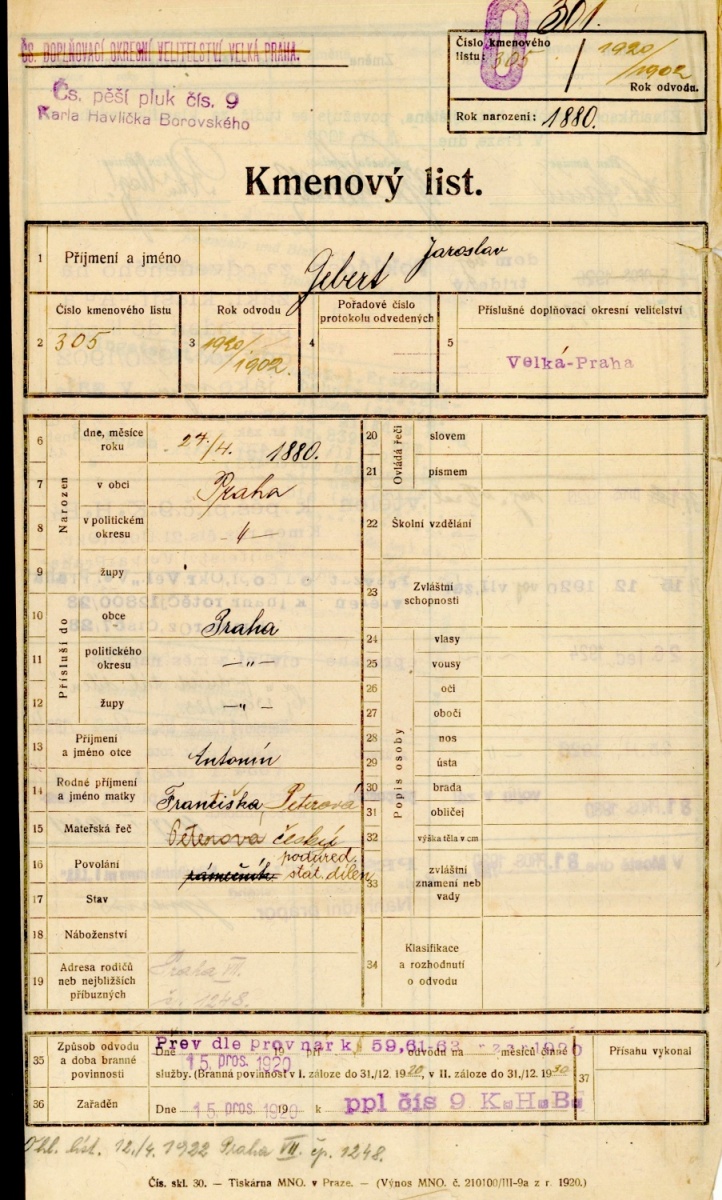 301.
ČS. DOPLŇOVACÍ OKRESNÍ VELITELSTVÍ VELKÁ PRAHA.
Číslo kmenového
listu: 305
1920/1902
Rok odvodu.
Rok narození: 1880.
Čs. pěší pluk čís. 9
Karla Havlíčka Borovského
Kmenový list.
1 Příjmení a jméno Gebert Jaroslav
Číslo kmenového listu Rok odvodu Pořadové číslo protokolu odvedených Příslušné doplňovací okresní velitelství
2 305 3 1920/1902. 4 5 Velká-Praha
Narozen
6 dne, měsíce roku 24/4. 1880.
7 v obci Praha
8 v politickém okresu -"-
9 župy
Přísluší do
10 obce Praha
11 politického okresu -"-
12 župy -"-
13 Příjmení a jméno otce Antonín
14 Rodné příjmení a jméno matky Františka Peterová
15 Mateřská řeč Petenova česká
16 Povolání zámečník podúřed. stát. dílen
17 Stav
18 Náboženství
19 Adresa rodičů neb nejbližších příbuzných Praha VII. č. 1248.
Ovládá řeči
20 slovem
21 písmem
22 Školní vzdělání
23 Zvláštní schopnosti
Popis osoby
24 vlasy
25 vousy
26 oči
27 obočí
28 nos
29 ústa
30 brada
31 obličej
32 výška těla v cm
33 zvláštní znamení neb vady
34 Klasifikace a rozhodnutí o odvodu
35 Způsob odvodu a doba branné povinnosti
Přev dle prov nař k § 59,61-63 z r 1920
Dne 15 pros. 1920 při odvodu na měsíců činné
služby. (Branná povinnost v I. záloze do 31./12. 1920, v II. záloze do 31./12. 1930
36 Zařaděn Dne 15 pros. 1920 19 k ppl čís 9 K.H.B.
37 Přísahu vykonal
Ohl. líst. 12./4. 1922 Praha VII. čp. 1248.
Čís. skl. 30. — Tiskárna MNO. v Praze. — (Výnos MNO. č. 210100/III-9a z r. 1920.)